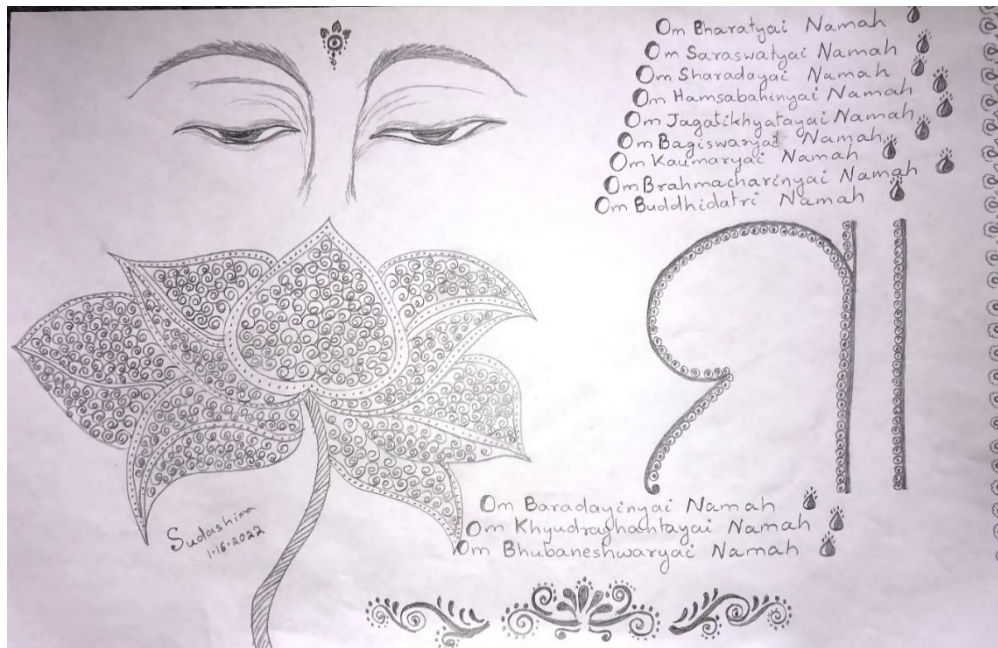 Om Bharatyai Namah
Om Saraswatyai Namah
Om Sharadayai Namah
Om Hamsabahinyai Namah
Om Jagatikhyatayai Namah
Om Bagiswaryai Namah
Om Kaumaryai Namah
Om Brahmacharinyai Namah
Om Buddhidatri Namah
ମା
Om Baradayinyai Namah
Om Khyudraghantayai Namah
Om Bhubaneshwaryai Namah
1-16-2022